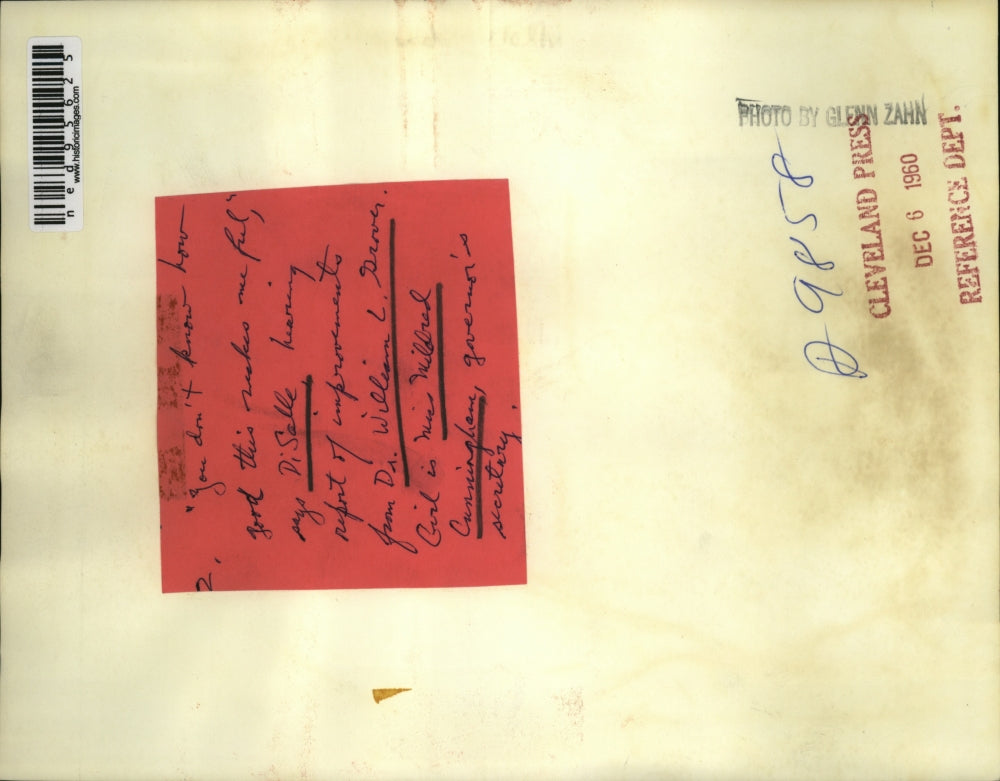 2. "You don't know how
good this makes me feel,"
says DiSalle hearing
report of improvements
from Dr. William L. Grover.
Girl is Miss Mildred
Cunningham, governor's
secretary.
PHOTO BY GLENN ZAHN
D 9858
CLEVELAND PRESS
DEC 6 1960
REFERENCE DEPT.
ned95625
www.historicimages.com